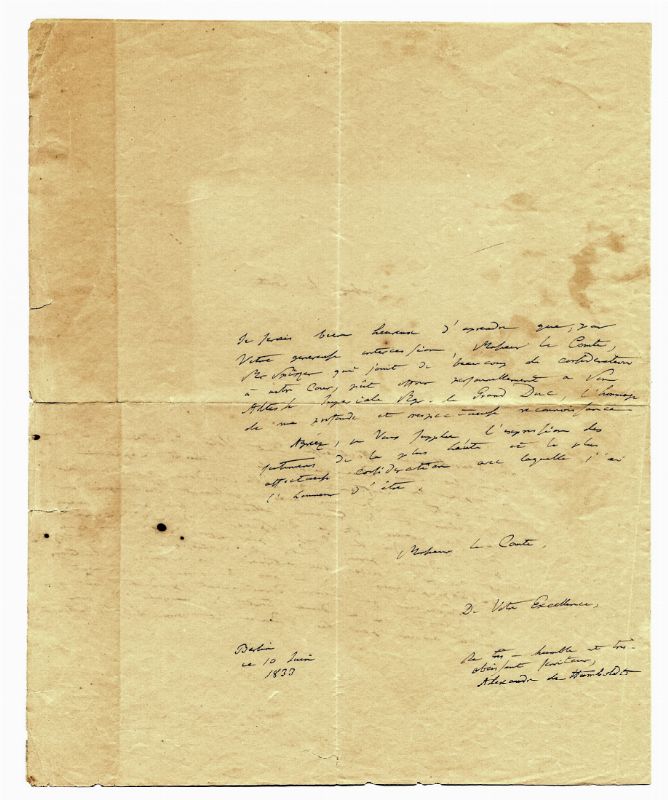 Je serais bien heureux d'apprendre que, par
Votre genereuse intercession Monsieur le Comte,
Mr qui jouit de beaucoup de consideration
à notre Cour, pût offrir personnellement à Son
Altesse Imperiale Mgr. le Grand Duc, l'hommage
de ma profonde et respectueuse reconnaissance.
Agréez, je Vous supplie l'expression des
sentimens de la plus haute et la plus
affectueuse consideration avec laquelle j'ai
l'honneur d'être,
Monsieur le Comte,
De Votre Excellence,
Berlin
ce 10 Juin
1833
le très-humble et très-
obéissant serviteur,
Alexandre de Humboldt